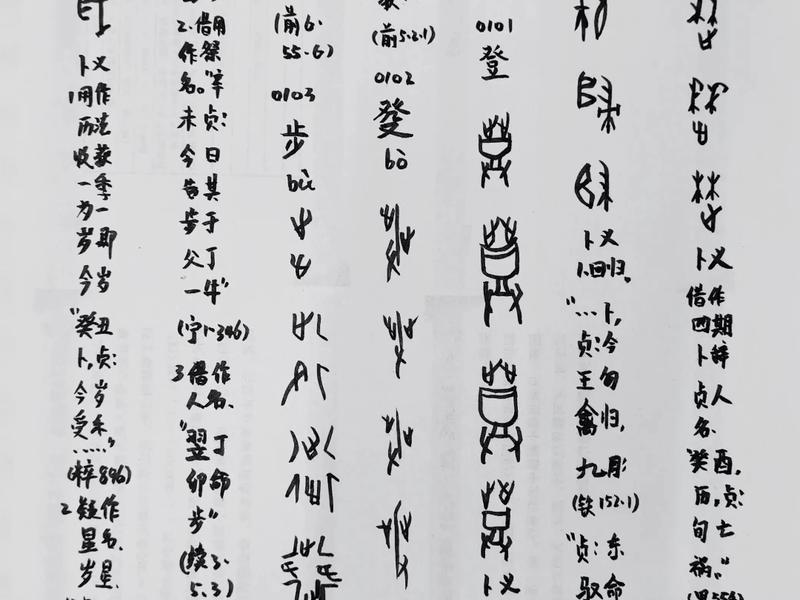 卜义
借作
四期
卜辞
贞人
名.
"癸酉,
历,贞:
旬亡
祸。"
卜义
1.回归。
"…卜,
贞:今
王旬
禽归,
(铁152.1)
"贞:东
驭命
0101
登
卜义
(前5.2.1)
0102
發
bō
(前6.
55.6)
0103
步
bù
2.借用
作祭
名。"辛
未贞:
今日
告其
步于
父丁
一牛"
(宁1·346)
3借作
人名、
"翌丁
卯命
步"
(续3.
5.3)
卜义
1用作
历法
收获
一季
为一
岁即
今岁
"癸丑
卜,贞:
今岁
受禾
……"
(粹896)
2疑作
星名.
岁星.